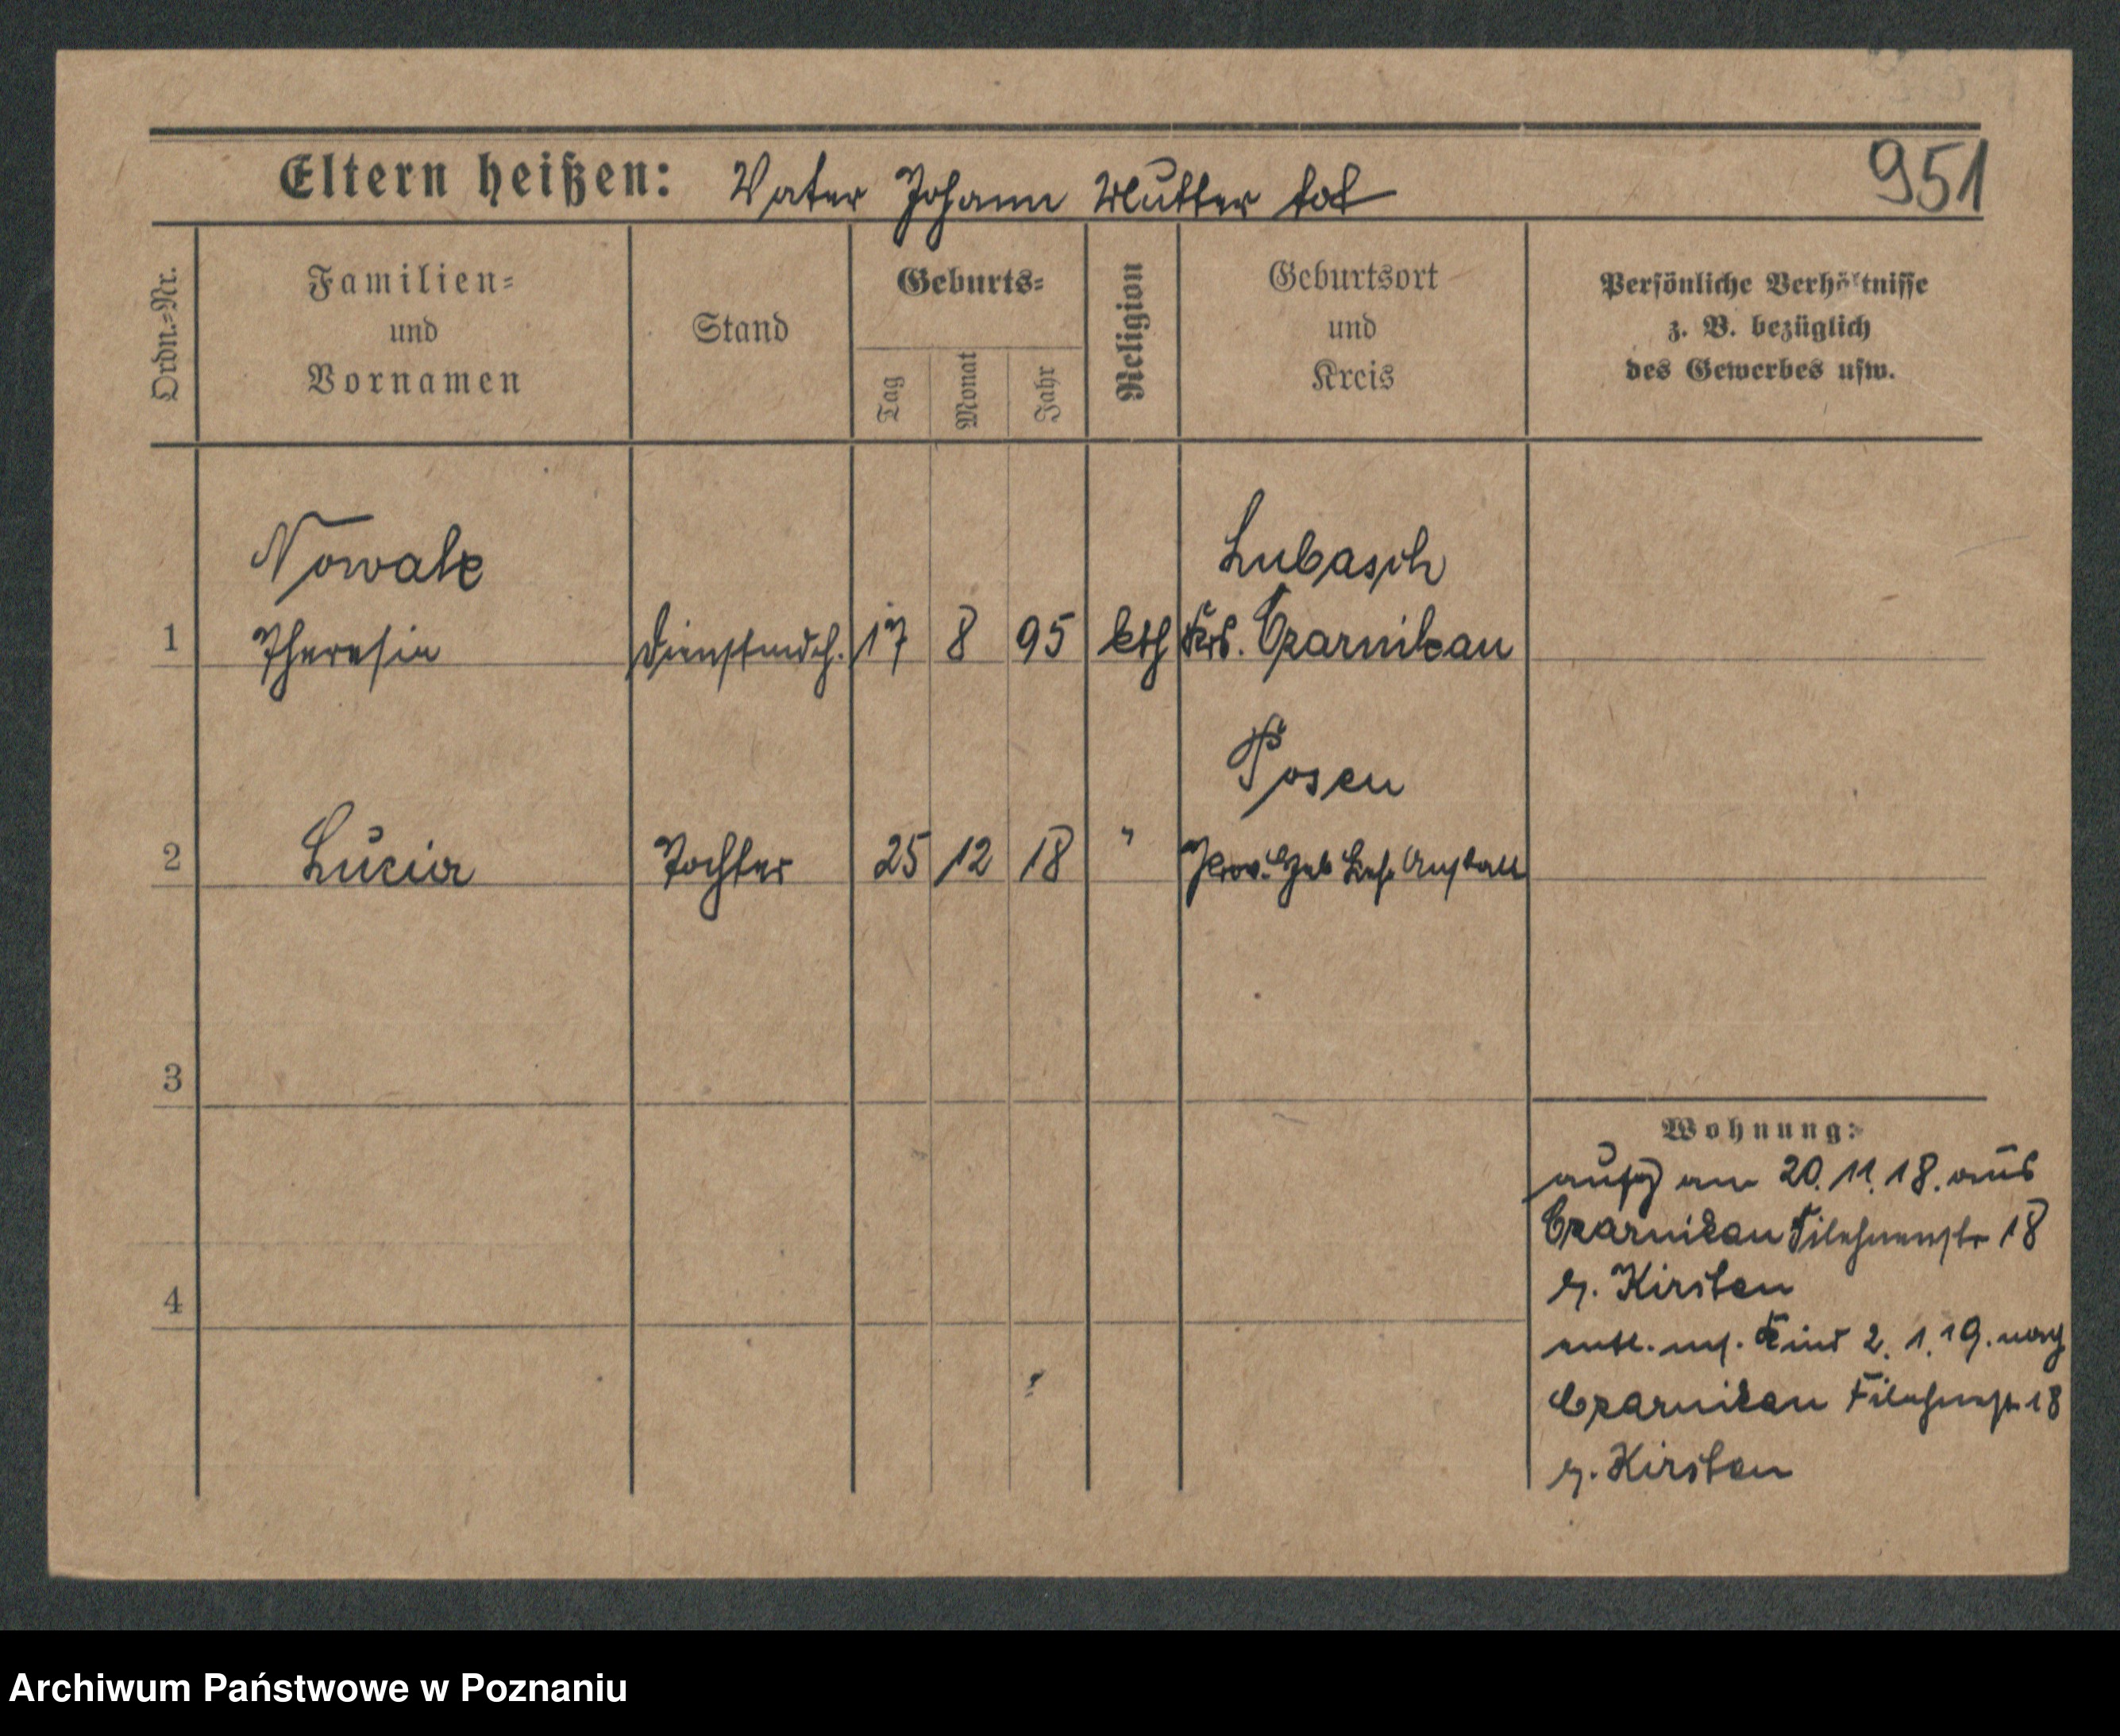 Eltern heißen: Vater Johann Mutter tot
951
Ordn.=Nr.
Familien=
und
Vornamen
Stand
Geburts=
Tag
Monat
Jahr
Religion
Geburtsort
und
Kreis
Persönliche Verhältnisse
z. B. bezüglich
des Gewerbes usw.
Nowak
Lubasch
1 Theresia Dienstmdch. 17 8 95 kth Krs. Czarnikau
Posen
2 Lucia Tochter 25 12 18 " Prov. Heb Lehr Anstalt
3
4
Wohnung:
am 20.11.18. aus
Czarnikau Filehnenstr 18
b. Kirsten
entl. m. Kind 2.1.19. nach
Czarnikau Filehnestr 18
b. Kirsten
Archiwum Państwowe w Poznaniu